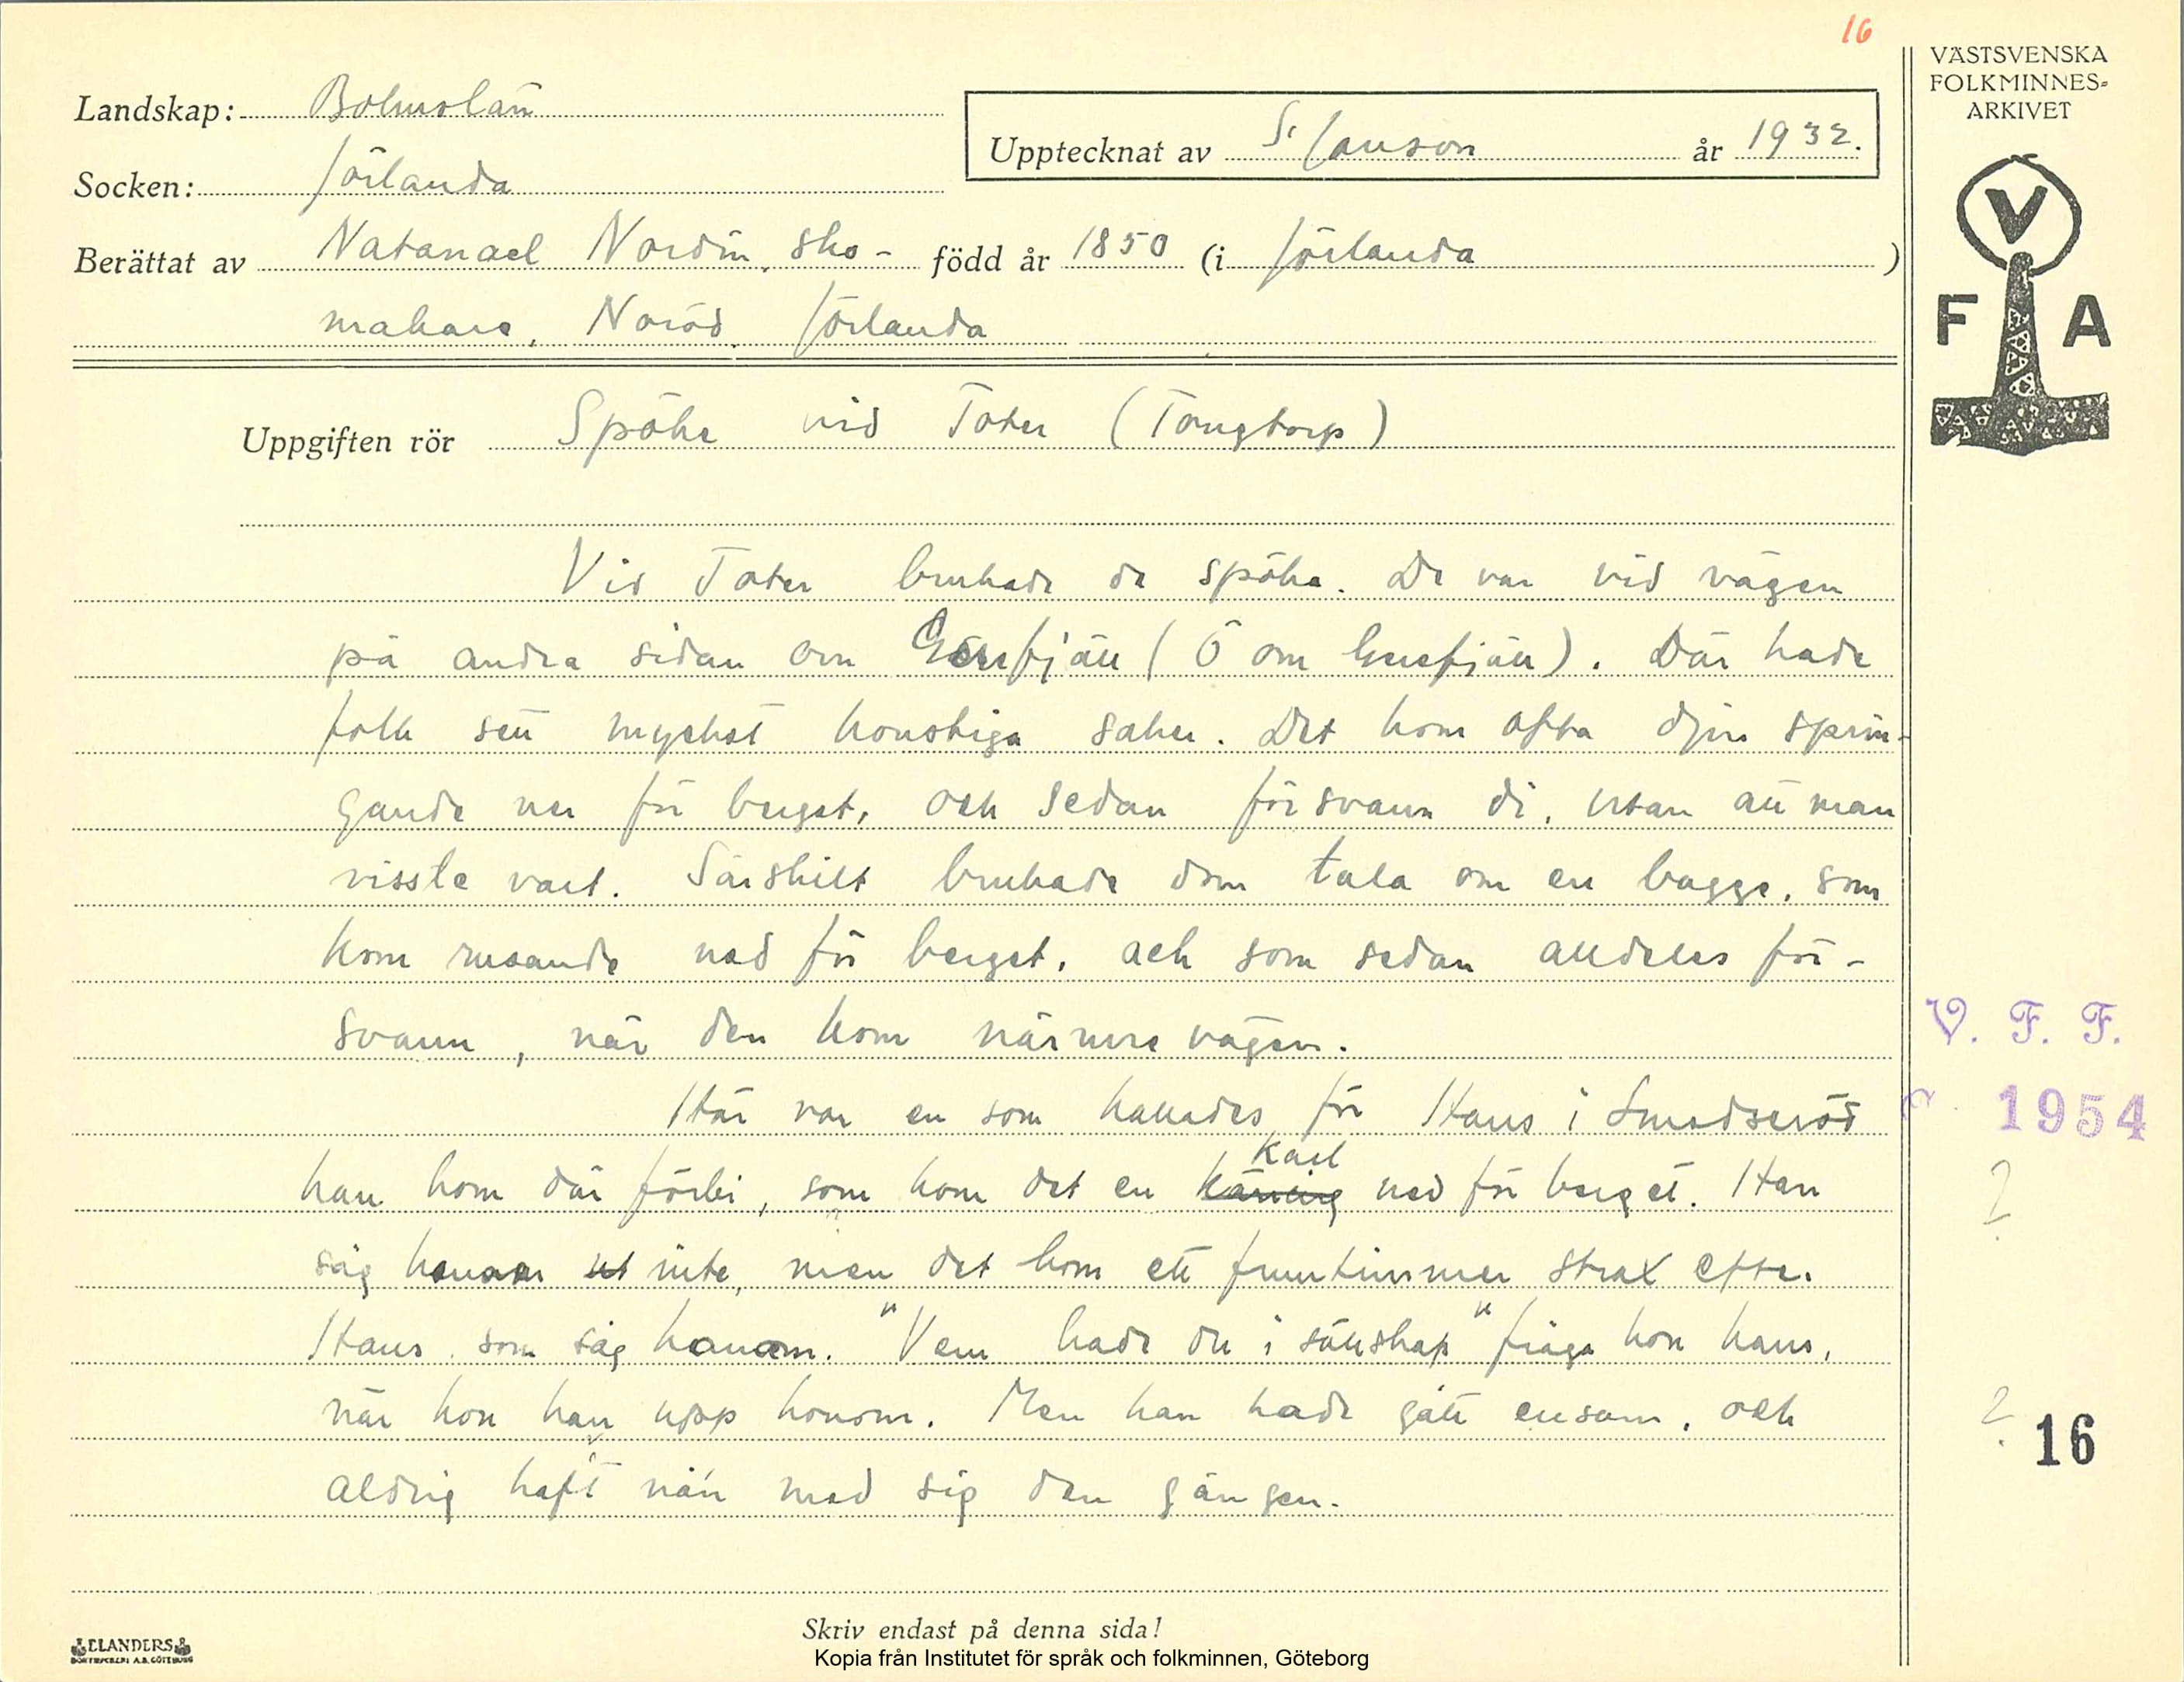 16
VÄSTSVENSKA
FOLKMINNES-
ARKIVET
Landskap: Bohuslän
Upptecknat av S. Janson år 1932.
Socken: Jörlanda
Berättat av Natanael Nordin, sko- född år 1850 (i Jörlanda )
makare, Noröd, Jörlanda
V
F A
Uppgiften rör Spöke vid Toter (Tongtorp)
Vid Toter brukade de spöka. De var vid vägen
på andra sidan om (Ö om ). Där hade
folk sett mycket konstiga saker. Det kom ofta djur sprin-
gande ner för berget, och sedan försvann di, utan att man
visste vart. Särskilt brukade dom tala om en bagge, som
kom rusande ned för berget, och som sedan alldeles för-
svann, när den kom närmre vägen.
V. F. F.
Här var en som kallades för Hans i Smedseröd
1954
han kom där förbi, som kom det en käring karl ned för berget. Han
?
såg honom ut inte, men det kom ett fruntimmer strax efter
Hans, som såg honom. "Vem hade du i sällskap" fråga hon hans,
när hon han upp honom. Men han hade gått ensam, och
?
16
aldrig haft nån med sig den gången.
Skriv endast på denna sida!
ELANDERS
BOKTRYCKERI A.B. GÖTEBORG
Kopia från Institutet för språk och folkminnen, Göteborg